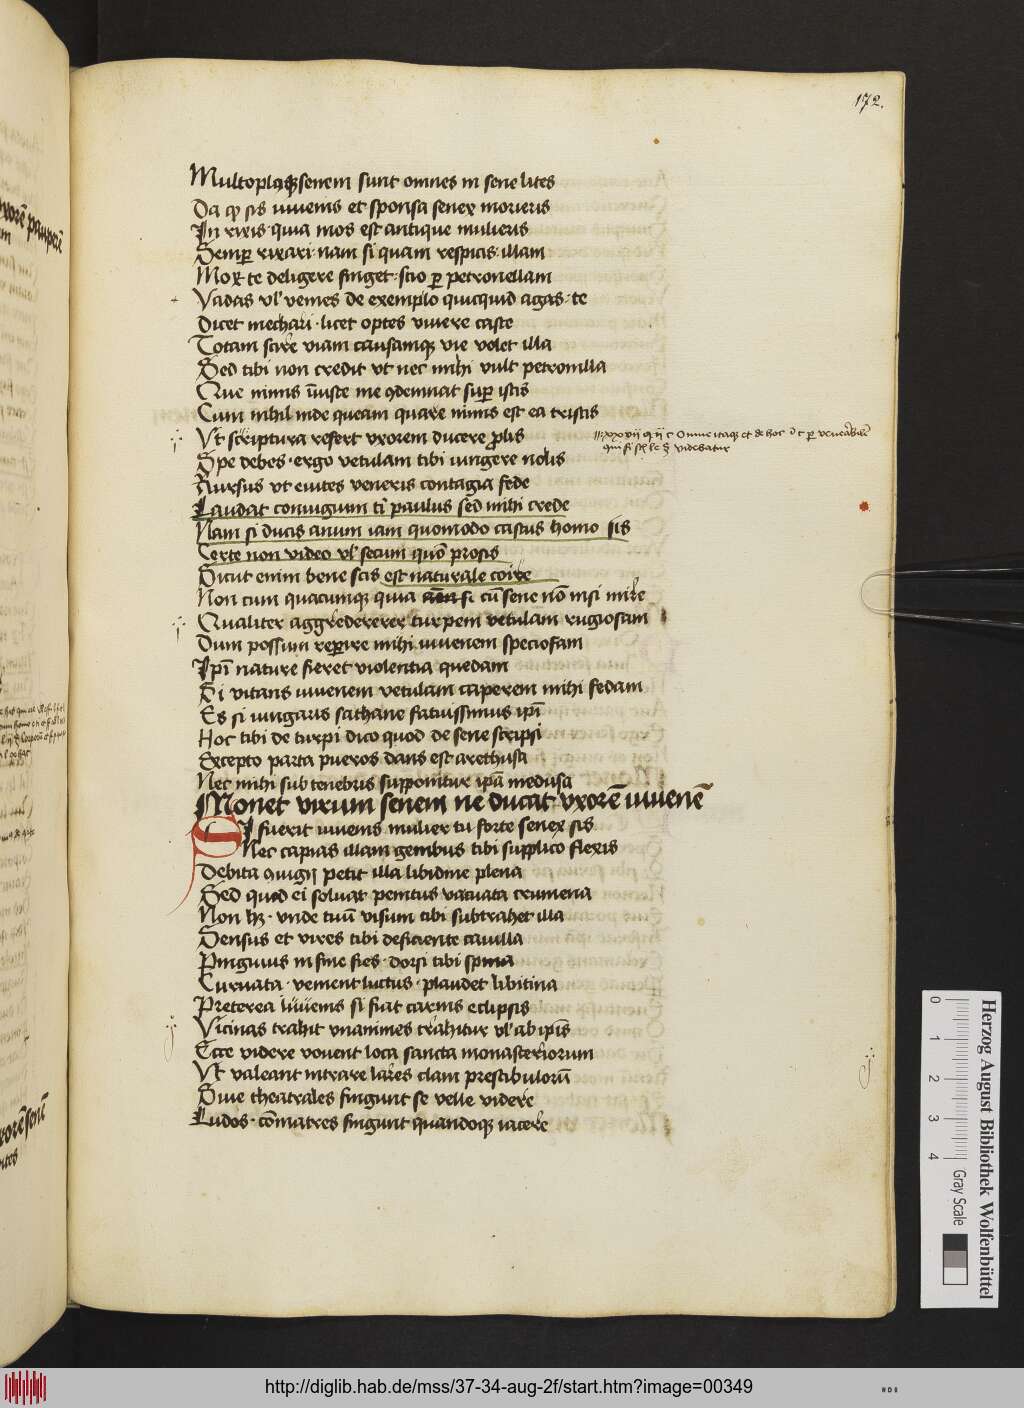 172.
Multoplaqꝫ senem sunt omnes in sene lites
Da qꝫ sis iuuenis et sponsa senex morieris
In rixis quia mos est antique mulieris
Semꝑ rixari nam si quam respicis illam
Mox te deligere finget scio ꝑ petronellam
Vadas vl' venies de exemplo quicquid agas te
Dicet mechari licet optes viuere caste
Totam scire viam causamqꝫ vie volet illa
Sed tibi non credit vt nec mihi vult petronilla
Que nimis iniuste me ꝯdemnat suꝑ istis
Cum nihil inde queam quare nimis est ea tristis
Vt scriptura refert vxorem ducere ꝓlis
Spe debes ergo vetulam tibi iungere nolis
Rursus vt euites veneris contagia fede
Laudat coniugium tibi paulus sed mihi crede
Nam si ducis anum iam quomodo castus homo sis
Certe non video vl' secum quō prosis
Sicut enim bene scis est naturale coire
Non cum quacumqꝫ quia si cū sene nō nisi mire
Qualiter aggrederer turpem vetulam rugiosam
Dum possum reꝑire mihi iuuenem speciosam
Ipī nature fieret violentia quedam
Si vitans iuuenem vetulam caperem mihi fedam
Es si iungaris sathane fatuissimus ipī
Hoc tibi de turpi dico quod de sene scripsi
Excepto parta pueros dans est arethusa
Nec mihi sub tenebris supponitur ipā medusa
Monet virum senem ne ducat vxorē iuuenē
SI fuerit iuuenis mulier tu forte senex sis
Nec capias illam genibus tibi supplico flexis
Debita ꝯiugij petit illa libidine plena
Sed quod ei soluat penitus vacuata crumena
Non hꝫ vnde tuū visum tibi subtrahet illa
Sensus et vires tibi deficiente cauilla
Pinguius in fine fies dorsi tibi spina
Curuata venient luctus plaudet libitina
Preterea iuuenis si fiat carnis eclipsis
Vicinas trahit vnanimes trahitur vl' ab ipīs
Ecce videre vouent loca sancta monasteriorum
Vt valeant intrare lares clam prestibulorū
Siue theatrales fingunt se velle videre
Ludos cōmatres fingunt quandoqꝫ iacere
Herzog August Bibliothek Wolfenbüttel
0 1 2 3 4
Gray Scale
http://diglib.hab.de/mss/37-34-aug-2f/start.htm?image=00349